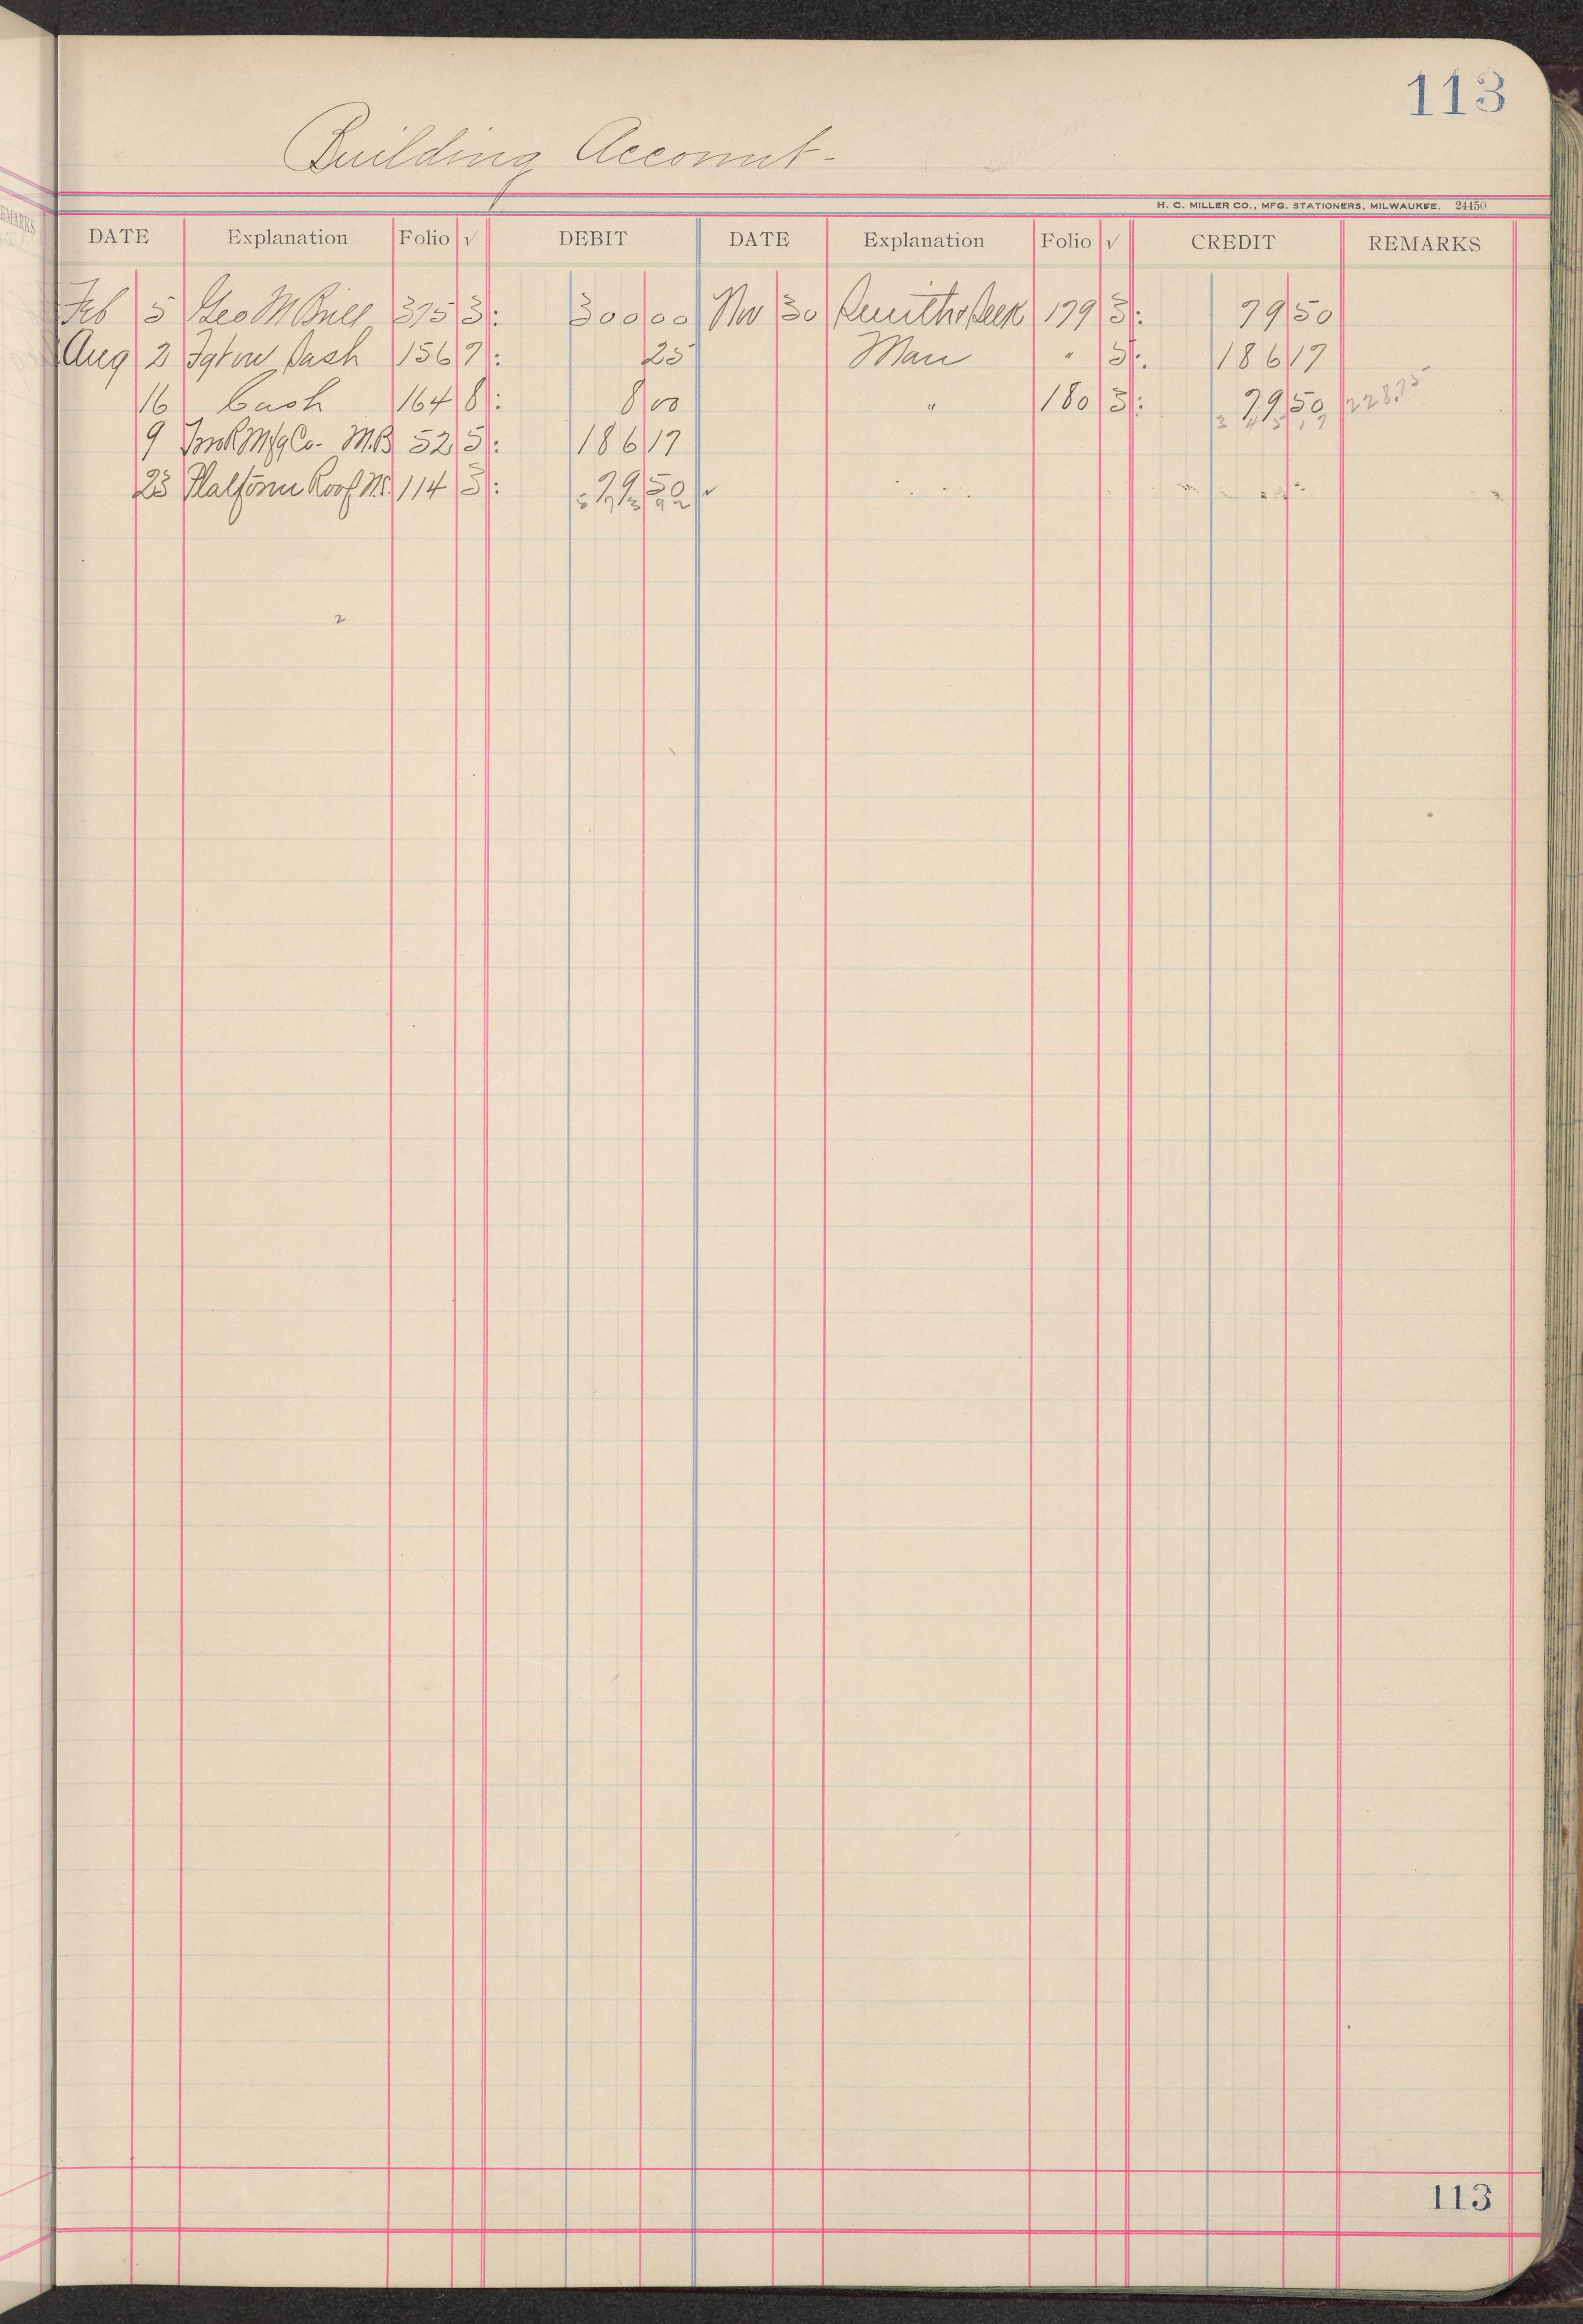 113
Building Account-
H. C. MILLER CO., MFG. STATIONERS, MILWAUKEE. 24450
DATE Explanation Folio √ DEBIT DATE Explanation Folio √ CREDIT REMARKS
Feb 5 Geo M 375 3 300 00 Nov 30 179 3 79 50
Aug 2 Cash 156 7 25 Man " 5 186 17
16 Cash 164 8 8 00 " 180 3 79 50 228.75
9 Mfg Co- M.B 52 5 186 17
23 Platform Roof 114 3 79 50
113